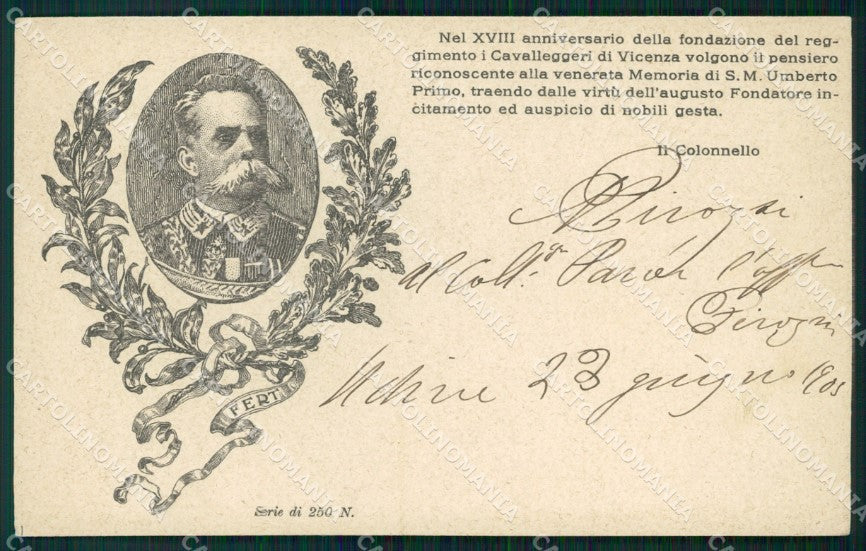 Nel XVIII anniversario della fondazione del reg-
gimento i Cavalleggeri di Vicenza volgono il pensiero
riconoscente alla venerata Memoria di S. M. Umberto
Primo, traendo dalle virtù dell'augusto Fondatore in-
citamento ed auspicio di nobili gesta.
Il Colonnello
Pirozzi
al Coll.
Udine 23 giugno 1903
FERT
Serie di 250 N.
CARTOLINOMANIA